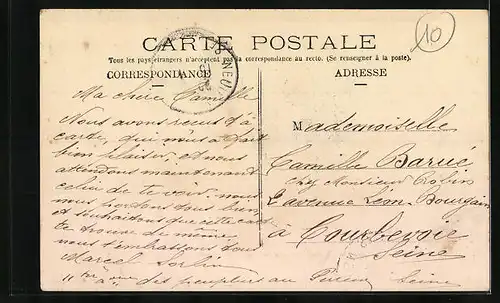 10
CARTE POSTALE
Tous les pays étrangers n'acceptent pas la correspondance au recto. (Se renseigner à la poste).
CORRESPONDANCE
ADRESSE
Ma chère Camille
Nous avons recut ta
carte, qui nous a fait
bien plaisir, et nous
attendons maintenant
celui de te voir, nous
nous portons tous bien
et souhaitons que cette carte
te trouve de même
nous t'embrassons tous
Marcel
des peupliers au Seine
Mademoiselle
Camille
chez Monsieur
avenue Léon Bourgain
à Courbevoie
Seine